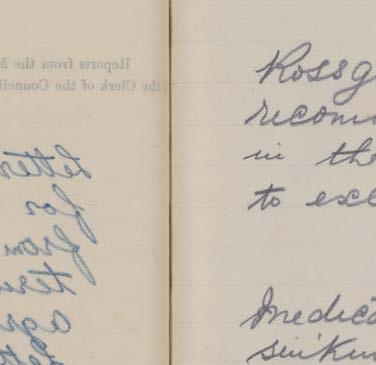 Reports from the M
the Clerk of the Council
letter
for
from
agr
Rossg
recom
in the
to exc
Medica